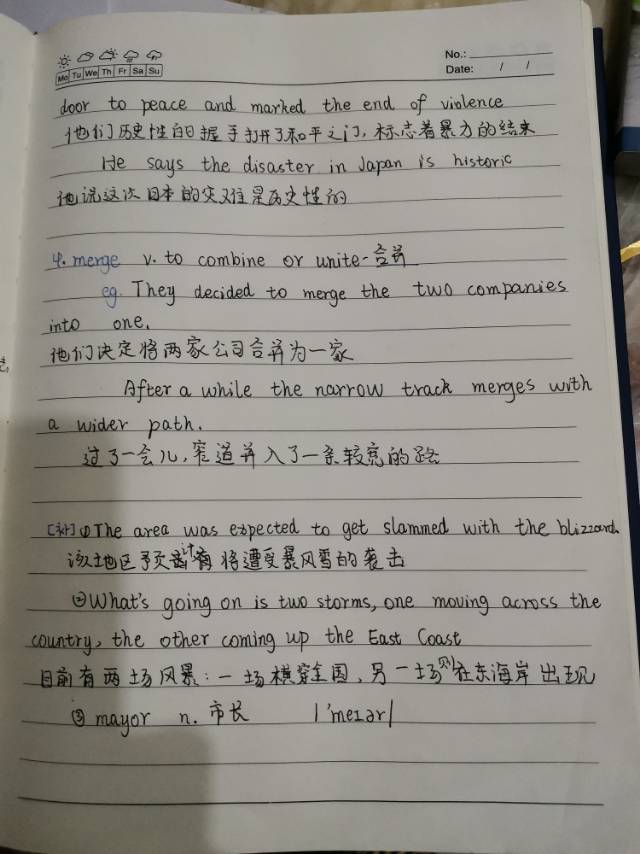 No.:
Mo Tu We Th Fr Sa Su
Date: / /
door to peace and marked the end of violence
他们历史性的握手打开了和平之门,标志着暴力的结束
He says the disaster in Japan is historic
他说这次日本的灾难是历史性的
4. merge v. to combine or unite-合并
eg. They decided to merge the two companies
into one.
他们决定将两家公司合并为一家
After a while the narrow track merges with
a wider path.
过了一会儿,窄道并入了一条较宽的路
[补] ①The area was expected to get slammed with the blizzard.
该地区预计将遭受暴风雪的袭击
②What's going on is two storms, one moving across the
country, the other coming up the East Coast
目前有两场风暴:一场横穿全国,另一场则在东海岸出现
③ mayor n. 市长 /ˈmeɪər/